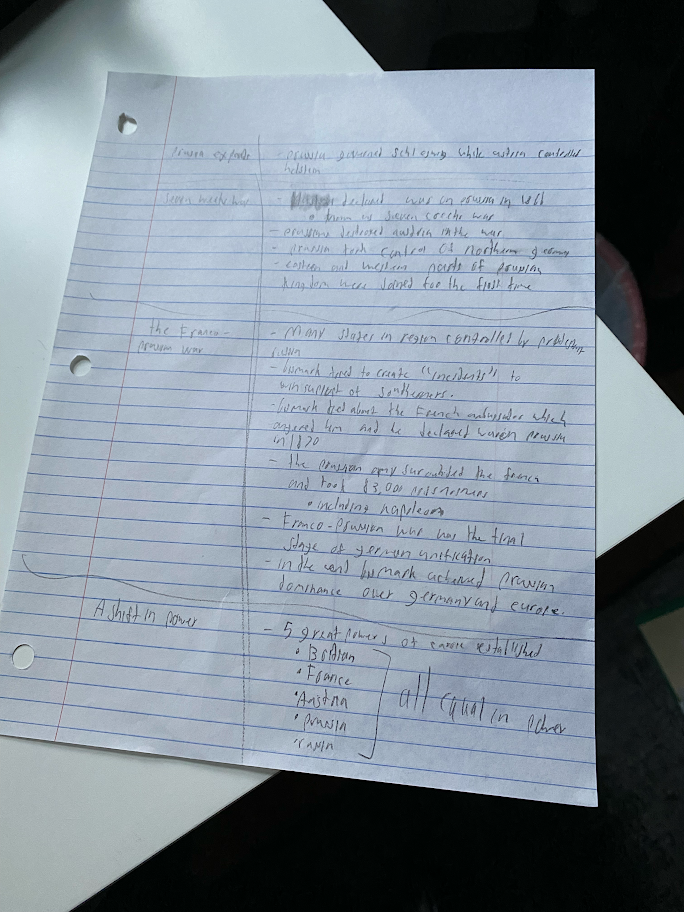 prussia governed while austria controlled
Seven weeks war
- declared war on prussia in
• seven weeks war
- prussians destroyed austria in the war
- prussia took control of northern germany
- eastern and western parts of prussian
kingdom were joined for the first time
the Franco-
prussian war
- Many states in region controlled by
- bismark tried to create "incidents" to
win support of southerners.
- bismark lied about the French ambassador which
angered him and he declared war on prussia
in 1870
- the prussian army surrounded the french
and took 83,000 prisoners
• including napoleon
- Franco-prussian war was the final
stage of german unification
- in the end bismark achieved prussian
dominance over germany and europe.
A shift in power
- 5 great powers of europe established
• Britian
• France
• Austria
• prussia
• russia
all equal in power